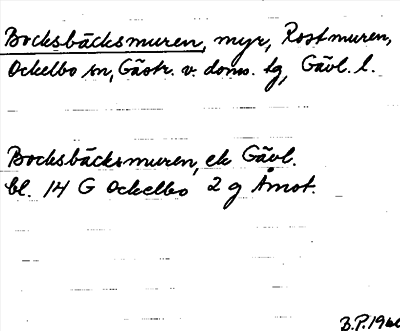 Bocksbäcksmuren, myr, Rostmuren,
Ockelbo sn, Gästr. v. doms. tg, Gävl. l.
Bocksbäcksmuren, ek Gävl.
bl. 14 G Ockelbo 2 g Åmot.
B.P.1960